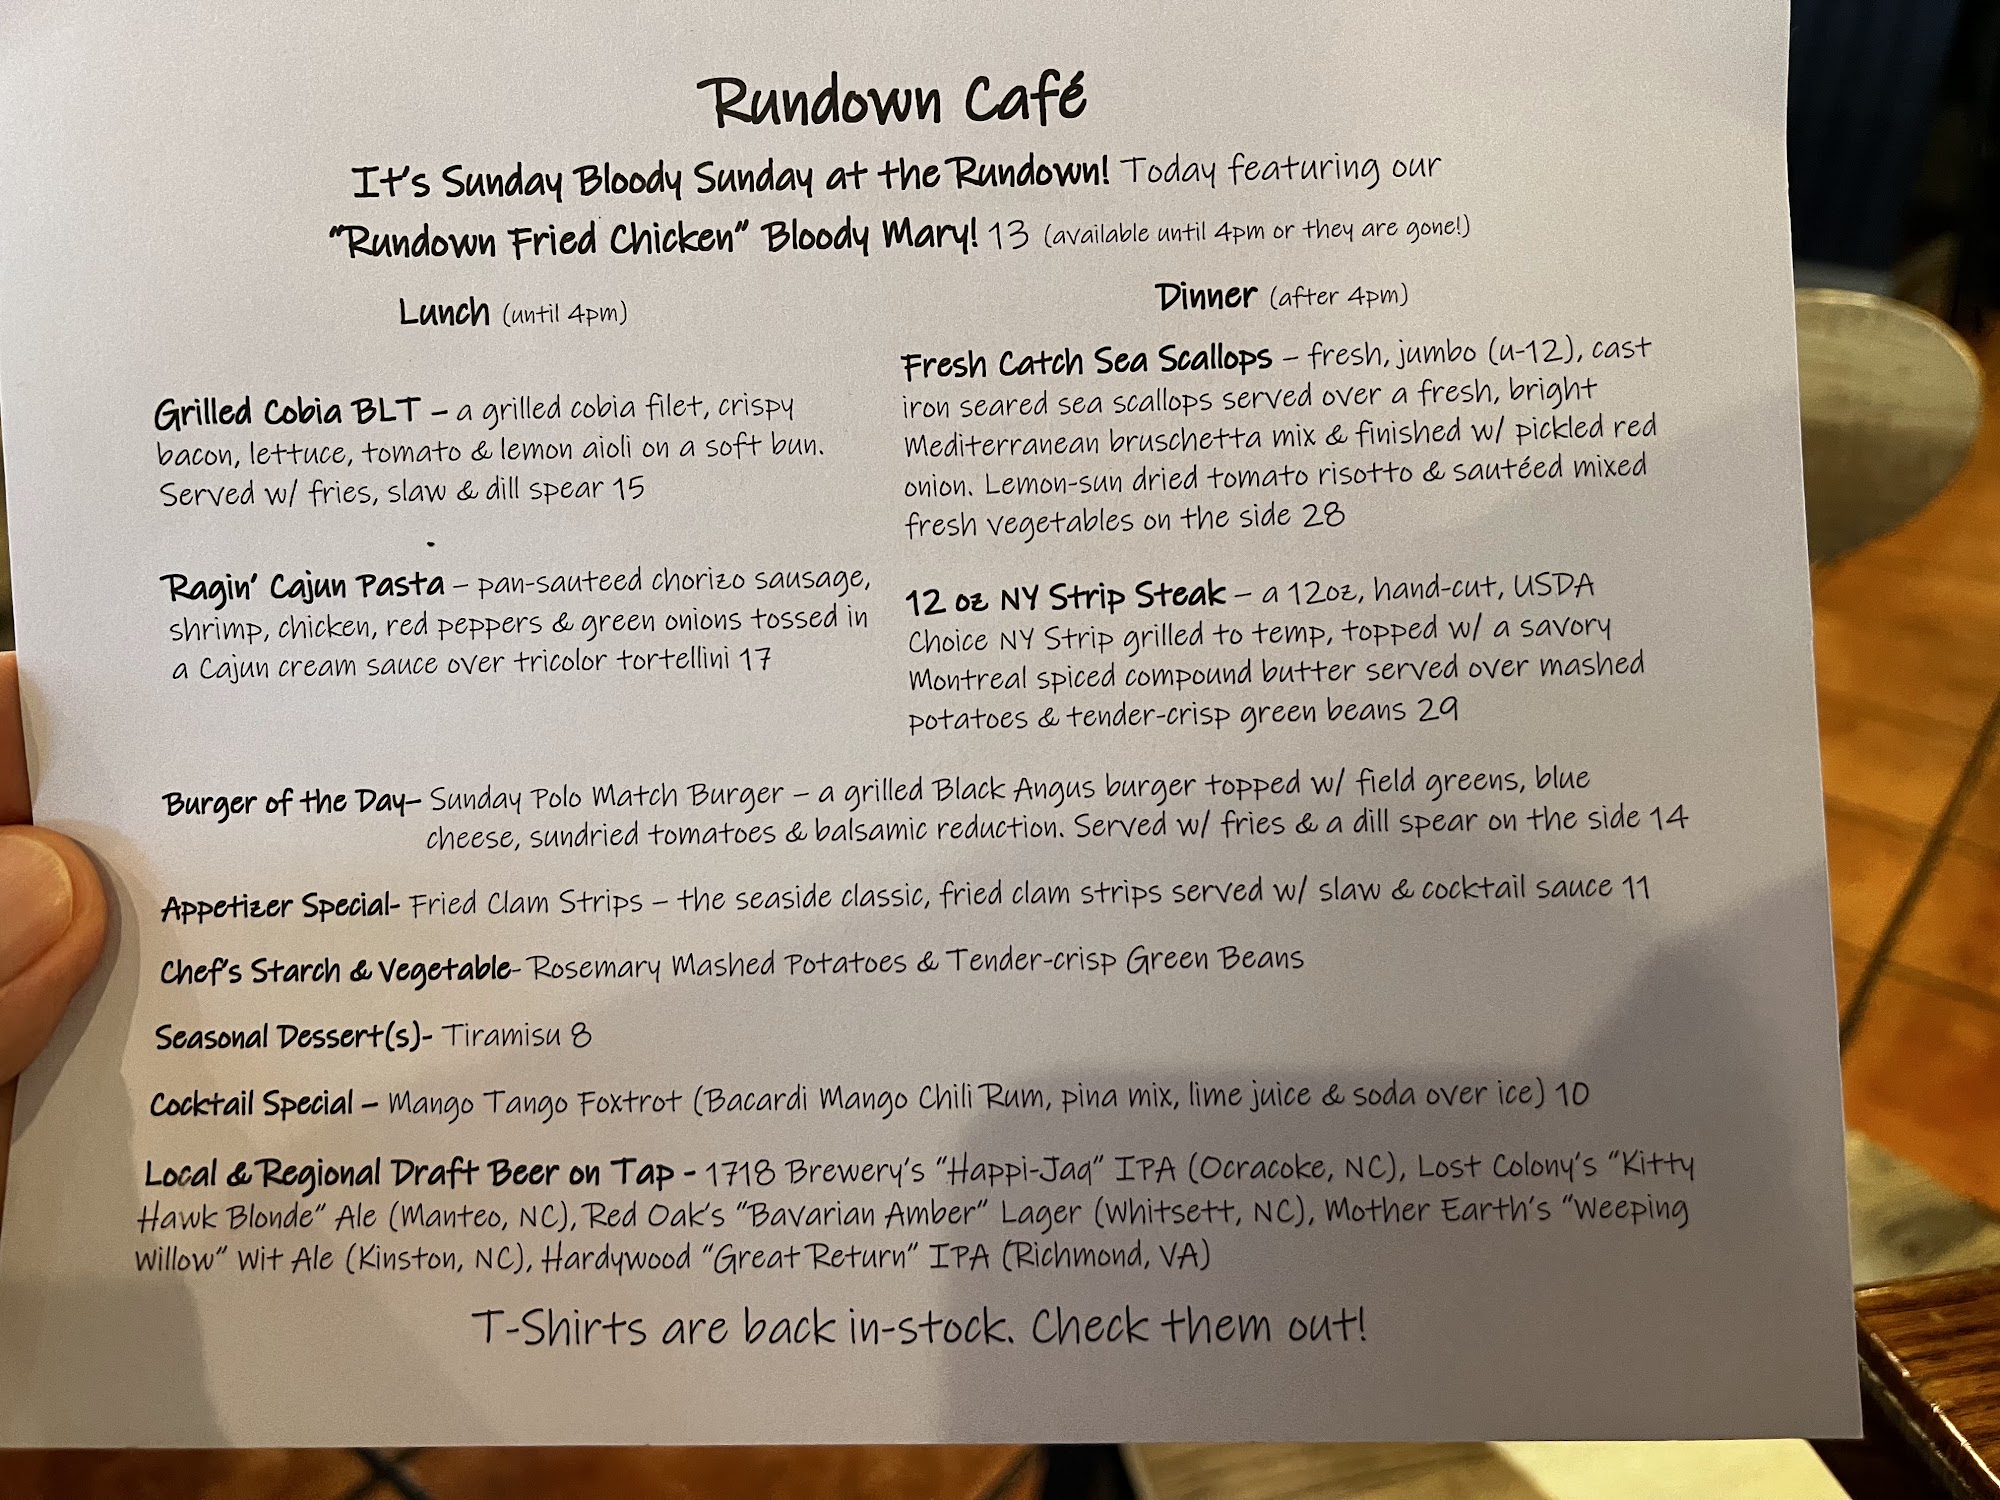 Rundown Café
It's Sunday Bloody Sunday at the Rundown! Today featuring our
"Rundown Fried Chicken" Bloody Mary! 13 (available until 4pm or they are gone!)
Lunch (until 4pm)
Grilled Cobia BLT – a grilled cobia filet, crispy
bacon, lettuce, tomato & lemon aioli on a soft bun.
Served w/ fries, slaw & dill spear 15
Ragin' Cajun Pasta – pan-sauteed chorizo sausage,
shrimp, chicken, red peppers & green onions tossed in
a Cajun cream sauce over tricolor tortellini 17
Dinner (after 4pm)
Fresh Catch Sea Scallops – fresh, jumbo (u-12), cast
iron seared sea scallops served over a fresh, bright
Mediterranean bruschetta mix & finished w/ pickled red
onion. Lemon-sun dried tomato risotto & sautéed mixed
fresh vegetables on the side 28
12 oz NY Strip Steak – a 12oz, hand-cut, USDA
Choice NY Strip grilled to temp, topped w/ a savory
Montreal spiced compound butter served over mashed
potatoes & tender-crisp green beans 29
Burger of the Day– Sunday Polo Match Burger – a grilled Black Angus burger topped w/ field greens, blue
cheese, sundried tomatoes & balsamic reduction. Served w/ fries & a dill spear on the side 14
Appetizer Special- Fried Clam Strips – the seaside classic, fried clam strips served w/ slaw & cocktail sauce 11
Chef's Starch & Vegetable- Rosemary Mashed Potatoes & Tender-crisp Green Beans
Seasonal Dessert(s)- Tiramisu 8
Cocktail Special – Mango Tango Foxtrot (Bacardi Mango Chili Rum, pina mix, lime juice & soda over ice) 10
Local & Regional Draft Beer on Tap - 1718 Brewery's "Happi-Jaq" IPA (Ocracoke, NC), Lost Colony's "Kitty
Hawk Blonde" Ale (Manteo, NC), Red Oak's "Bavarian Amber" Lager (Whitsett, NC), Mother Earth's "Weeping
Willow" Wit Ale (Kinston, NC), Hardywood "Great Return" IPA (Richmond, VA)
T-Shirts are back in-stock. Check them out!